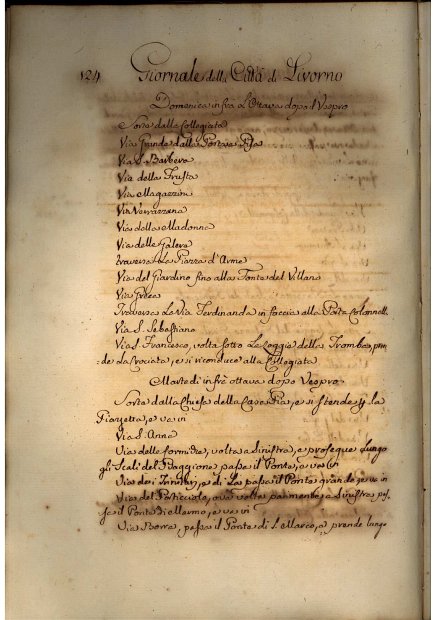 124 Giornale della Città di Livorno
Domenica infrà l'Ottava dopo il Vespro
Sorte dalla Collegiata
Via Grande dalla Porta a Pisa
Via S. Barbera
Via della Frusta
Via Magazzini
Via Verrazzana
Via della Madonna
Via delle Galere
Traversa La Piazza d'Arme
Via del Giardino fino alla Fonte del Villano
Via Greca
Traversa La Via Ferdinanda in foccia alla Porta Colonnell.
Via S. Sebastiano
Via S. Francesco, volta sotto Le Loggie della Tromba, pren
de La Crociata, e si riconduce alla Collegiata
Martedì infrà ottava dopo Vespro
Sorte dalla Chiesa della Casa Pia, e si stende p la
Piazzetta, e va in
Via S. Anna
Via delle formiche, volta a Sinistra, e prosegue Lungo
gli Scali del Piaggione passa il Ponte, e va in
Via dei, e di La passa il Ponte grande, e va in
Via del, ova volta parimente a Sinistra pas
sa il Ponte, e va in
Via Borra, passa il Ponte di S. Marco, e prende lungo